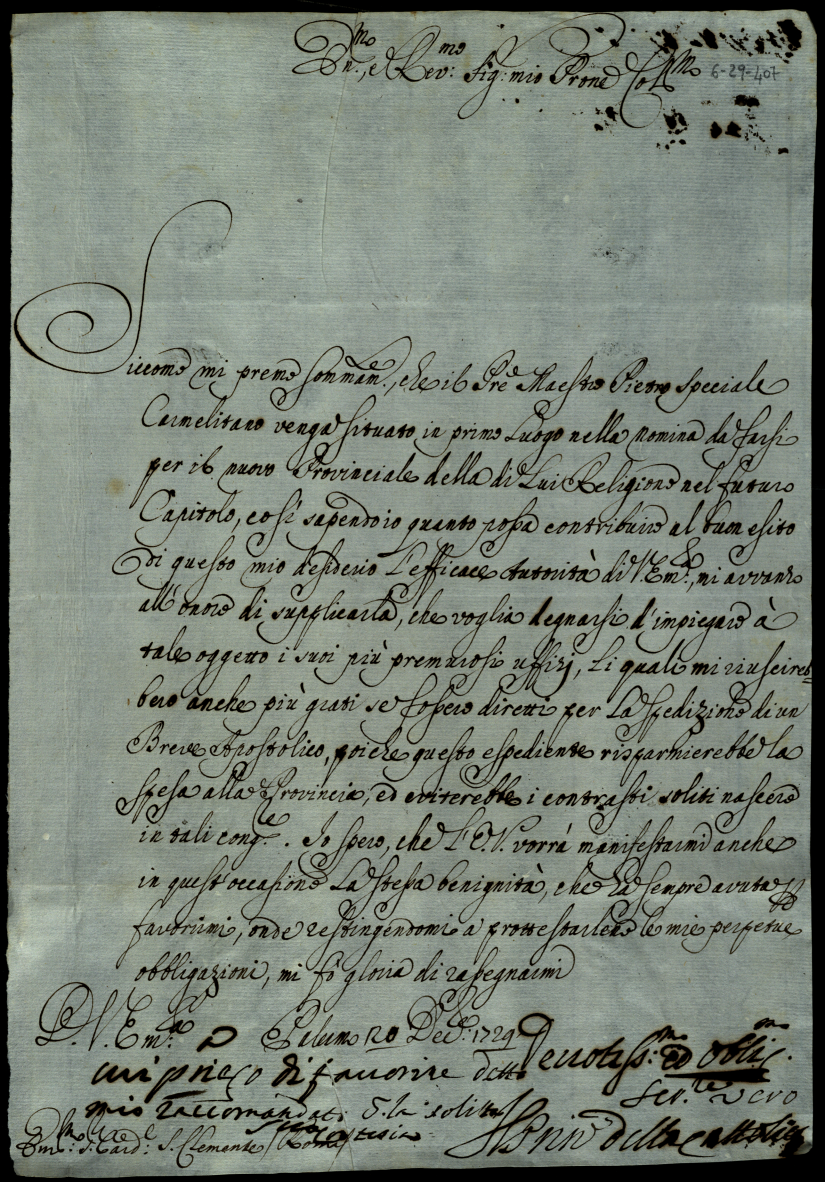 Em.mo, e Rev.mo Sig: mio Prone Coll.mo 6-29-407
Siccome mi preme sommam.e, che il Pre Maestro Pietro Speciale
Carmelitano venga situato in primo Luogo nella nomina da farsi
per il nuovo Provinciale della di Lui Religione nel futuro
Capitolo, così sapendo io quanto possa contribuire al buon esito
di questo mio desiderio l'efficace autorità di V. Em.a, mi avvanzo
all'onore di supplicarla, che voglia degnarsi d'impiegare à
tale oggetto i suoi più premurosi uffizj, li quali mi riuscireb=
bero anche più grati se fossero diretti per la spedizione di un
Breve Apostolico, poiche questo espediente risparmierebbe la
spesa alla Provincia, ed eviterebbe i contrasti soliti nascere
in tali cong.e. Io spero, che l'E.V. vorrà manifestarmi anche
in quest'occasione la stessa benignità, che hà sempre avuta per
favorirmi, onde restingendomi a protestarlene le mie perpetue
obbligazioni, mi fò gloria di rassegnarmi
D. V. Em.a Palermo 20 Dec.e 1729
Devotiss:mo ed obblig.mo
mi prieco di favorire detto
Ser.re Vero
mio raccomandato la solita
Em.mo S. Card.e S. Clemente Roma
Il Prin.e della Cattolica